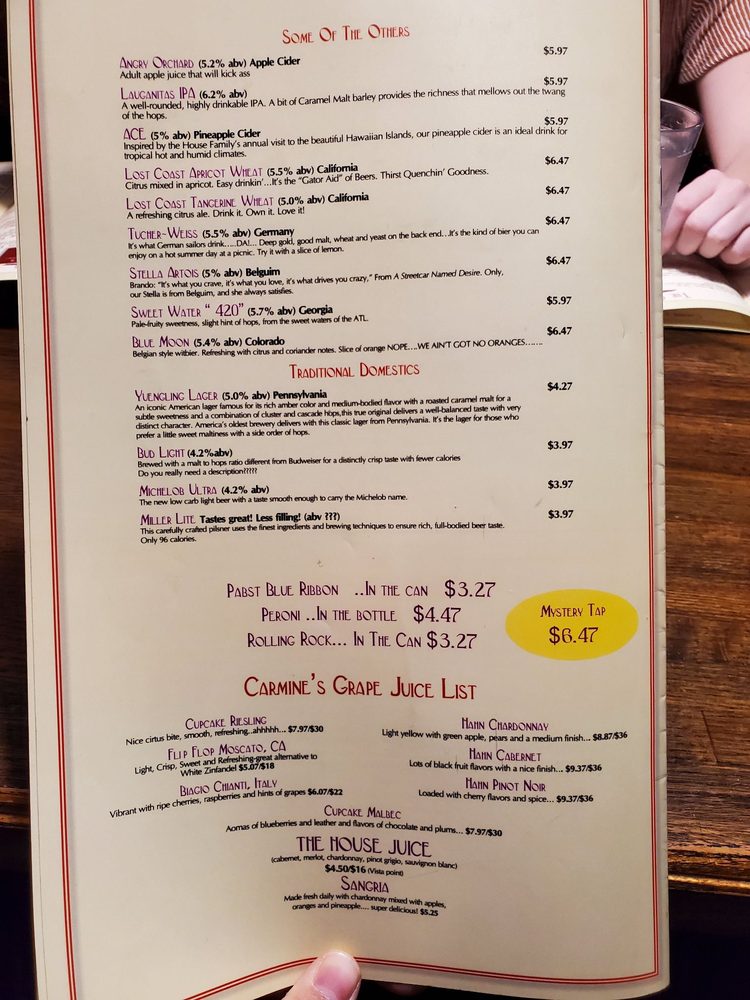 Some Of The Others
$5.97
Angry Orchard (5.2% abv) Apple Cider
Adult apple juice that will kick ass
$5.97
Lauganitas IPA (6.2% abv)
A well-rounded, highly drinkable IPA. A bit of Caramel Malt barley provides the richness that mellows out the twang
of the hops.
$5.97
ACE (5% abv) Pineapple Cider
Inspired by the House Family's annual visit to the beautiful Hawaiian Islands, our pineapple cider is an ideal drink for
tropical hot and humid climates.
$6.47
Lost Coast Apricot Wheat (5.5% abv) California
Citrus mixed in apricot. Easy drinkin'...It's the "Gator Aid" of Beers. Thirst Quenchin' Goodness.
$6.47
Lost Coast Tangerine Wheat (5.0% abv) California
A refreshing citrus ale. Drink it. Own it. Love it!
$6.47
Tucher-Weiss (5.5% abv) Germany
It's what German sailors drink.....DA!... Deep gold, good malt, wheat and yeast on the back end...It's the kind of bier you can
enjoy on a hot summer day at a picnic. Try it with a slice of lemon.
$6.47
Stella Artois (5% abv) Belguim
Brando: "It's what you crave, it's what you love, it's what drives you crazy," From A Streetcar Named Desire. Only,
our Stella is from Belguim, and she always satisfies.
$5.97
Sweet Water " 420" (5.7% abv) Georgia
Pale-fruity sweetness, slight hint of hops, from the sweet waters of the ATL.
$6.47
Blue Moon (5.4% abv) Colorado
Belgian style witbier. Refreshing with citrus and coriander notes. Slice of orange NOPE....WE AIN'T GOT NO ORANGES.......
Traditional Domestics
$4.27
Yuengling Lager (5.0% abv) Pennsylvania
An iconic American lager famous for its rich amber color and medium-bodied flavor with a roasted caramel malt for a
subtle sweetness and a combination of cluster and cascade hops,this true original delivers a well-balanced taste with very
distinct character. America's oldest brewery delivers with this classic lager from Pennsylvania. It's the lager for those who
prefer a little sweet maltiness with a side order of hops.
$3.97
Bud Light (4.2%abv)
Brewed with a malt to hops ratio different from Budweiser for a distinctly crisp taste with fewer calories
Do you really need a description?????
$3.97
Michelob Ultra (4.2% abv)
The new low carb light beer with a taste smooth enough to carry the Michelob name.
$3.97
Miller Lite Tastes great! Less filling! (abv ???)
This carefully crafted pilsner uses the finest ingredients and brewing techniques to ensure rich, full-bodied beer taste.
Only 96 calories.
Pabst Blue Ribbon ..In the can $3.27
Peroni ..In the bottle $4.47
Rolling Rock... In The Can $3.27
Mystery Tap
$6.47
Carmine's Grape Juice List
Cupcake Riesling
Nice cirtus bite, smooth, refreshing..ahhhhh... $7.97/$30
Flip Flop Moscato, CA
Light, Crisp, Sweet and Refreshing-great alternative to
White Zinfandel $5.07/$18
Biagio Chianti, Italy
Vibrant with ripe cherries, raspberries and hints of grapes $6.07/$22
Hahn Chardonnay
Light yellow with green apple, pears and a medium finish... $8.87/$36
Hahn Cabernet
Lots of black fruit flavors with a nice finish... $9.37/$36
Hahn Pinot Noir
Loaded with cherry flavors and spice... $9.37/$36
Cupcake Malbec
Aomas of blueberries and leather and flavors of chocolate and plums... $7.97/$30
THE HOUSE JUICE
(cabernet, merlot, chardonnay, pinot grigio, sauvignon blanc)
$4.50/$16 (Vista point)
Sangria
Made fresh daily with chardonnay mixed with apples,
oranges and pineapple.... super delicious! $5.25